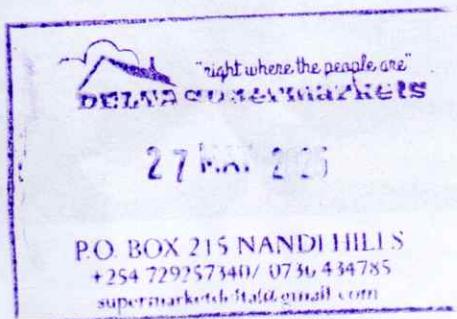 "right where the people are"
DELTA SUPERMARKETS
27 MAY 2025
P.O. BOX 215 NANDI HILLS
+254 729257340/ 0736 434785
supermarketdelta@gmail.com